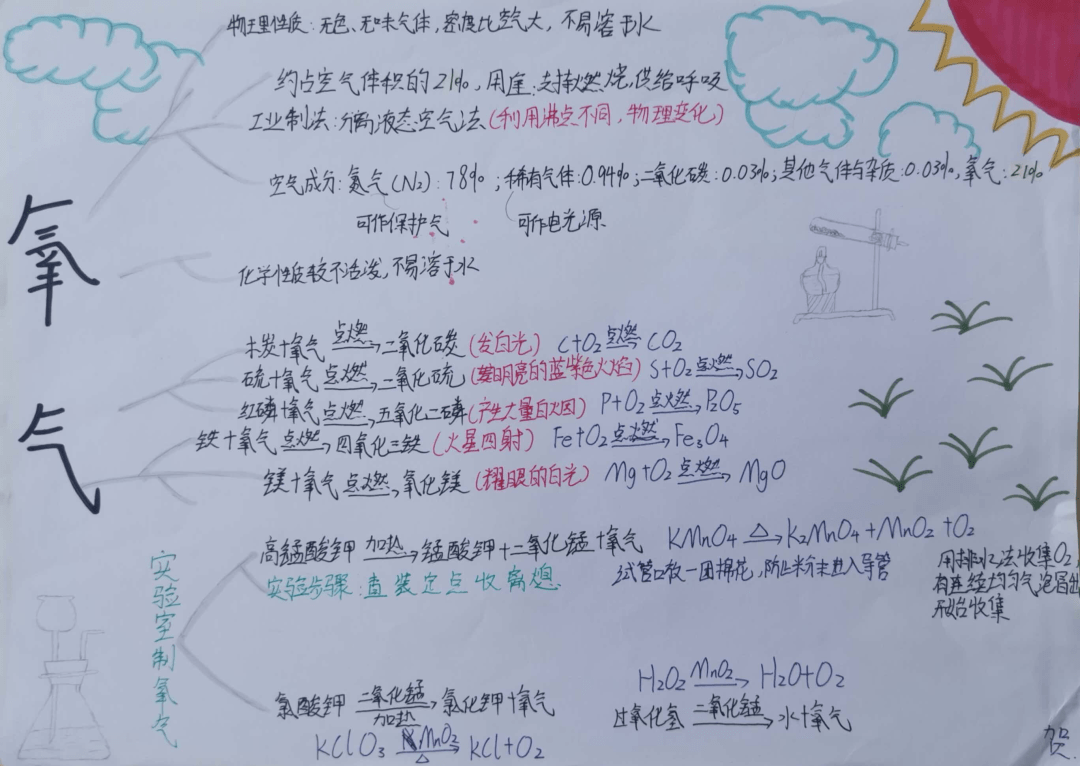 物理性质:无色、无味气体,密度比空气大,不易溶于水
约占空气体积的21%,用途:支持燃烧,供给呼吸
工业制法:分离液态空气法(利用沸点不同,物理变化)
空气成分:氮气(N₂):78%;稀有气体:0.94%;二氧化碳:0.03%;其他气体与杂质:0.03%,氧气:21%
可作保护气 可作电光源
氧气
化学性质较不活泼,不易溶于水
木炭+氧气 点燃→ 二氧化碳(发白光) C+O₂ 点燃→ CO₂
硫+氧气 点燃→ 二氧化硫(明亮的蓝紫色火焰) S+O₂ 点燃→ SO₂
红磷+氧气 点燃→ 五氧化二磷(产生大量白烟) P+O₂ 点燃→ P₂O₅
铁+氧气 点燃→ 四氧化三铁(火星四射) Fe+O₂ 点燃→ Fe₃O₄
镁+氧气 点燃→ 氧化镁(耀眼的白光) Mg+O₂ 点燃→ MgO
实验室制氧气
高锰酸钾 加热→ 锰酸钾+二氧化锰+氧气 KMnO₄ △→ K₂MnO₄+MnO₂+O₂
实验步骤:查装定点收离熄
试管口放一团棉花,防止粉末进入导管
用排水法收集O₂
有连续均匀气泡冒出
开始收集
氯酸钾 二氧化锰→加热 氯化钾+氧气
KClO₃ MnO₂→△ KCl+O₂
H₂O₂ MnO₂→ H₂O+O₂
过氧化氢 二氧化锰→ 水+氧气
贺